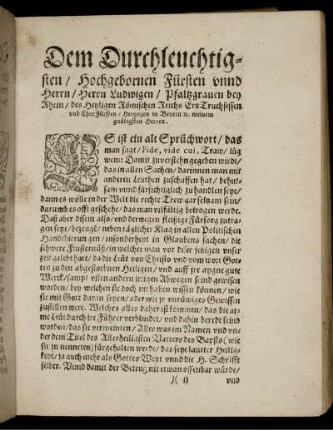 Dem Durchleuchtig-
sten / Hochgebornen Fürsten vnnd
Herrn / Herrn Ludwigen / Pfaltzgrauen bey
Rhein / des Heyligen Römischen Reichs Ertz Truchsessen
vnd ChurFürsten / Hertzogen in Beyern ꝛc. meinem
gnädigsten Herren.
ES ist ein alt Sprüchwort / das
man sagt / Fide, vide cui, Traw / sag
wem: Damit zuverstehn gegeben wirdt /
das in allen Sachen / darinnen man mit
anderen Leuthen zuschaffen hat / behut-
sam vnnd fürsichtiglich zu handlen seye /
dann es wölle in der Welt die rechte Trew gar seltzam sein /
darumb es offt geschehe / das man vilfältig betrogen werde.
Daß aber disem also / vnd derwegen fleissige Fürsorg zutra-
gen seye / bezeugt / neben täglicher Klag in allen Politischen
Handthierungen / insonderheyt in Glaubens sachen / die
schwere Finsternüß / in welcher man vor diser jetzigen vnser
zeit gelebt hat / da die Leut von Christo vnd vom wort Got-
tes zu den abgestorbnen Heiligen / vnd auff jre eygne gute
Werck / sampt vilen andern jrrigen Abwegen seind gewisen
worden / bey welchen sie doch nie haben wissen können / wie
sie mit Gott daran seyen / oder wie jr vnrüwiges Gewissen
zustillen were. Welches alles daher ist kommen / das die ar-
me Leut durch jre Führer verblendet / vnd dahin beredt seind
worden / das sie vermeinten / Alles was im Namen vnd vn-
der dem Titel des Allerheiligsten Vatters des Bapsts (wie
sie jn nenneten) fürgehalten werde / das seye lautter Heilig-
keyt / ja auch mehr als Gottes Wort vnnd die H. Schrifft
selber. Vnnd damit der Betrug nit etwan offenbar würde /
)( j) vnd